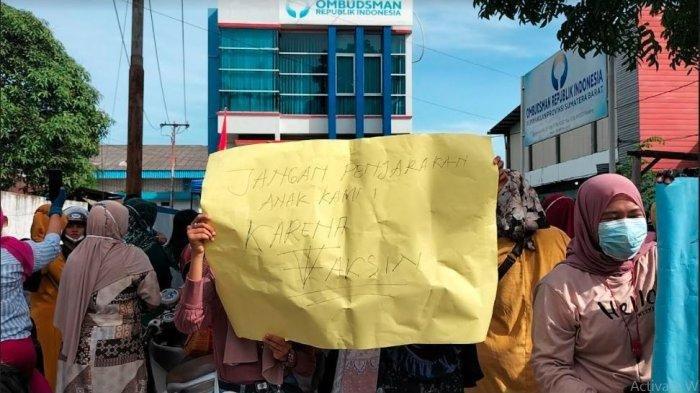 OMBUDSMAN
REPUBLIK INDONESIA
OMBUDSMAN REPUBLIK INDONESIA
PERWAKILAN PROVINSI SUMATERA BARAT
JANGAN PENJARAKAN
ANAK KAMI!
KARENA
VAKSIN
Hello
Activate W